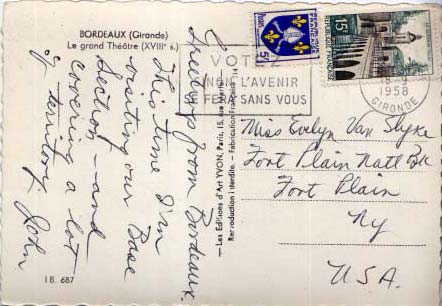 BORDEAUX (Gironde)
Le grand Théâtre (XVIIIᵉ s.)
Greetings from Bordeaux.
This time I'm
visiting our Base
Section — and
covering a lot
of territory. John
I B. 687
— Les Editions d'Art YVON, Paris, 15, rue
Reproduction interdite. - Fabrication Française
VOTEZ
NON L'AVENIR
SE FERA SANS VOUS
1958
GIRONDE
5f
15F
Miss Evelyn Van Slyke
Fort Plain Natl Bk
Fort Plain
NY
U.S.A.